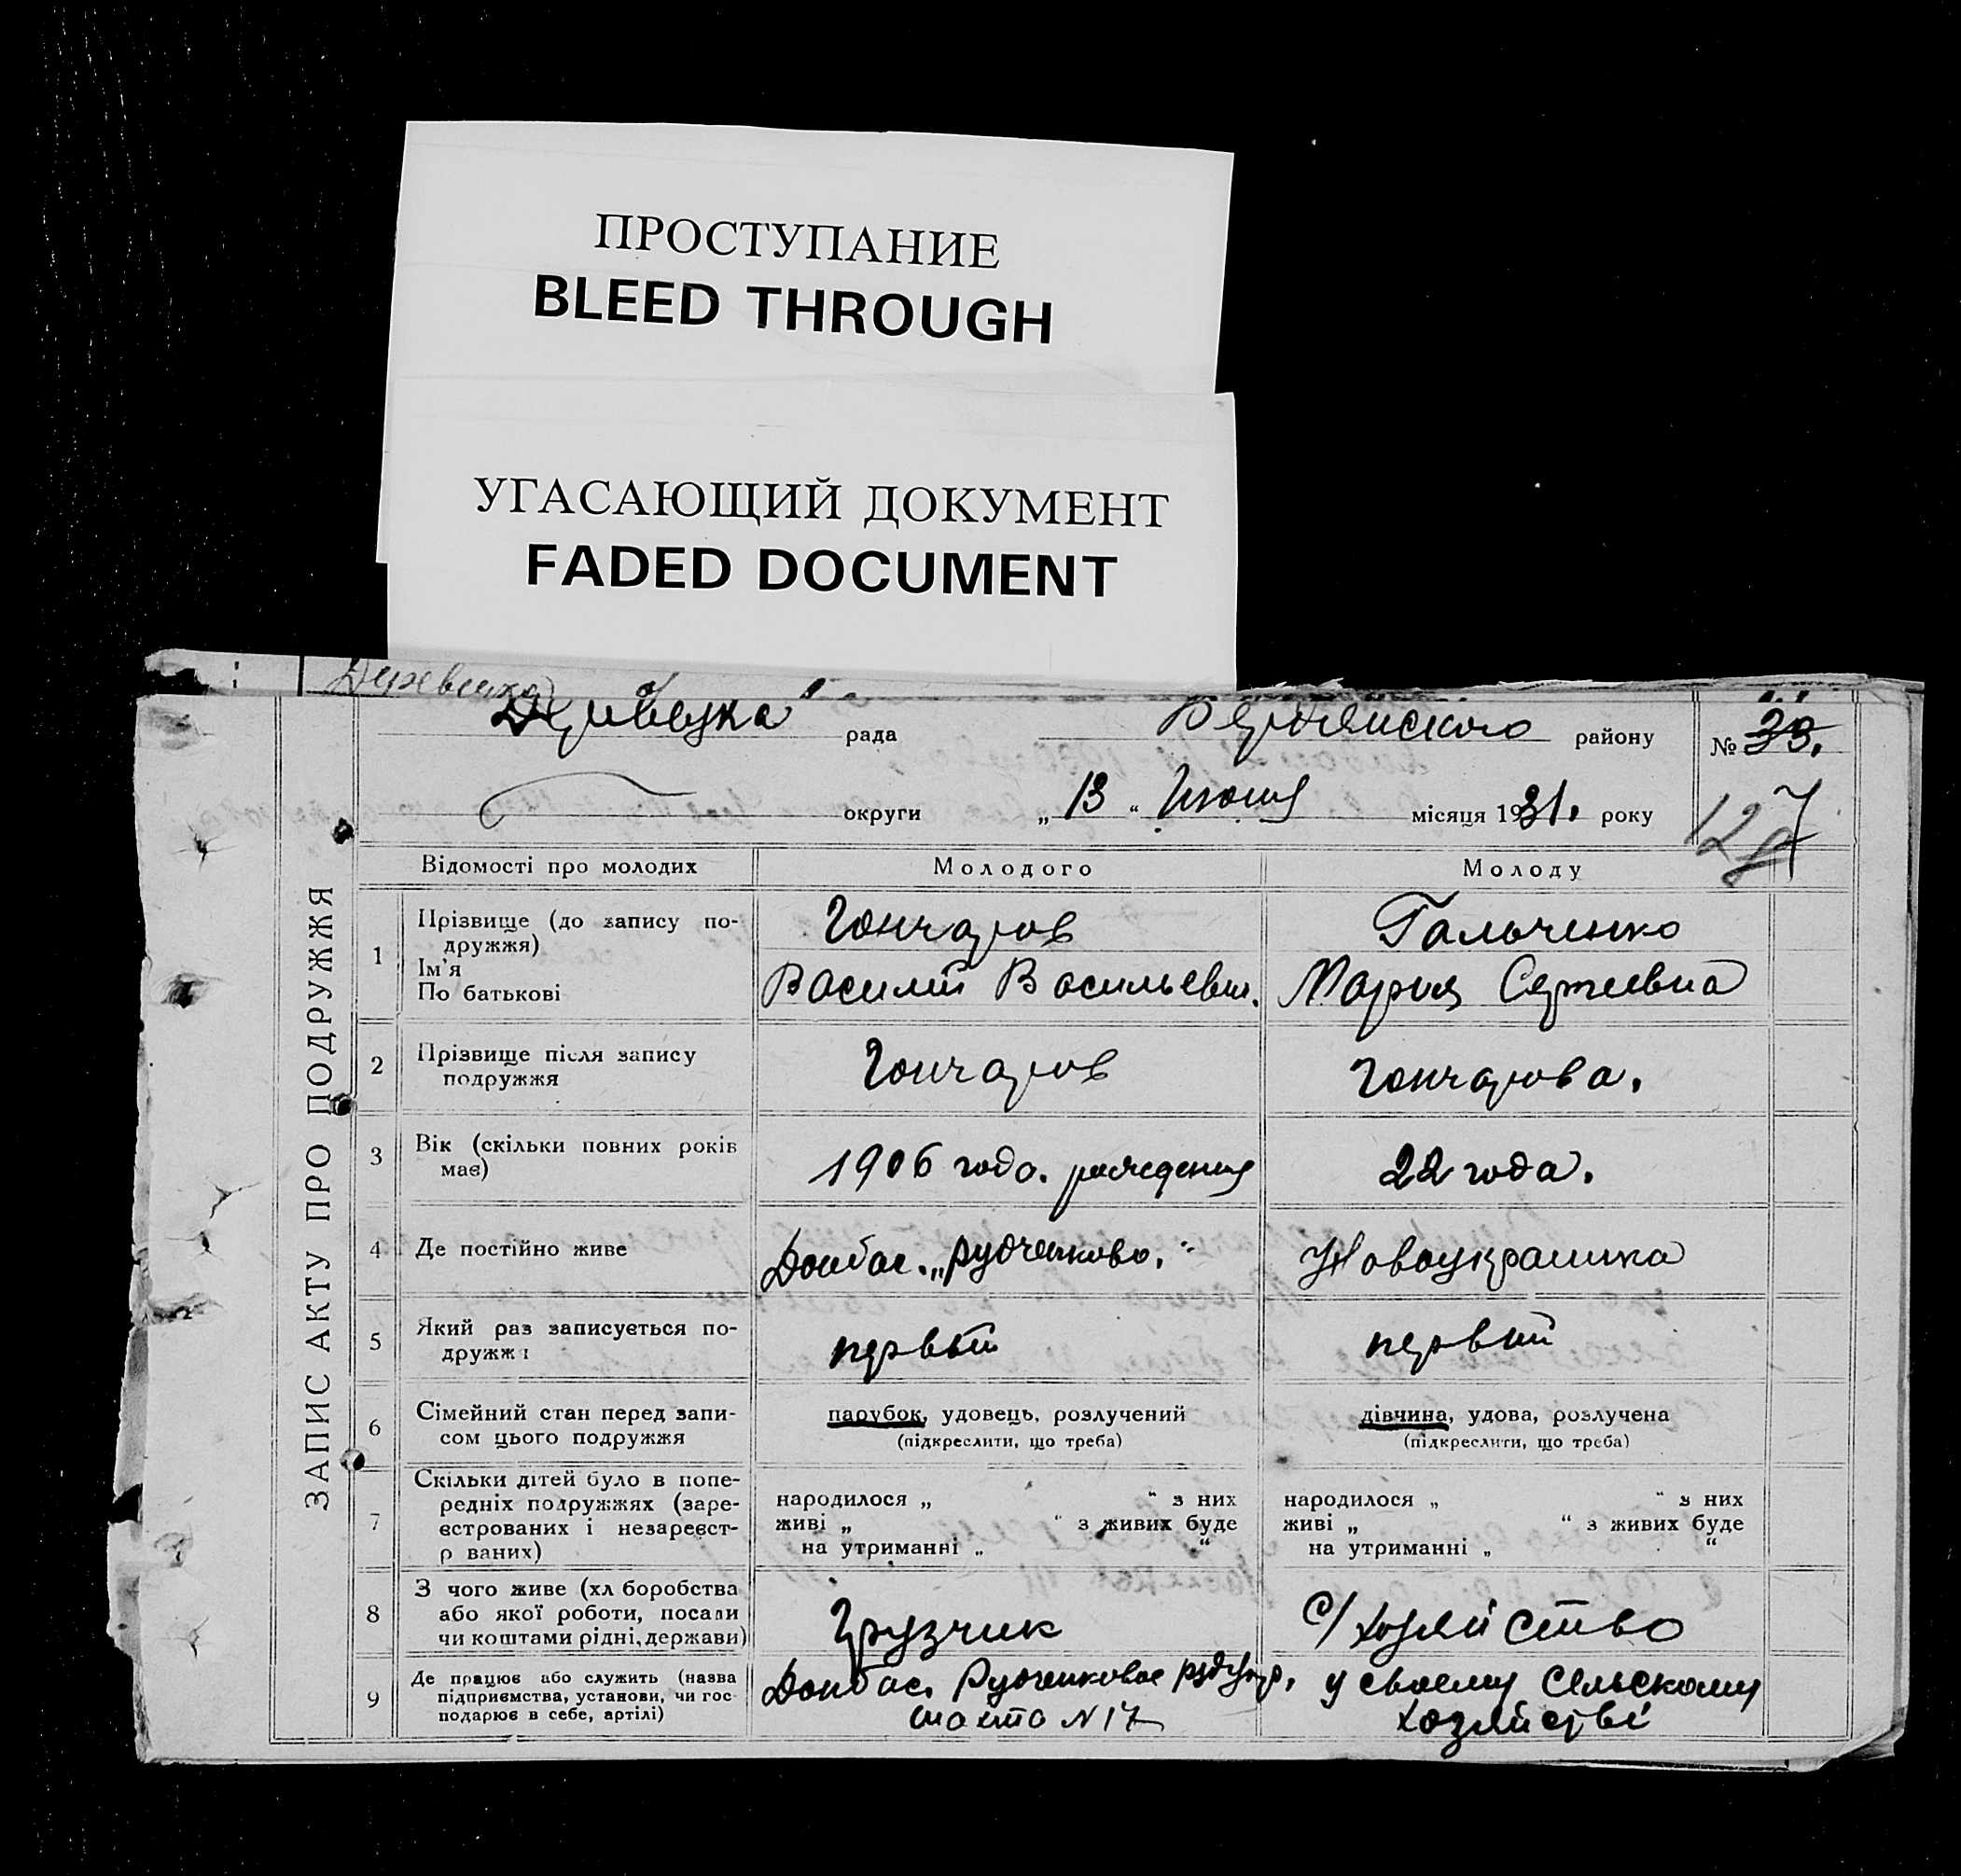 ПРОСТУПАНИЕ
BLEED THROUGH
УГАСАЮЩИЙ ДОКУМЕНТ
FADED DOCUMENT
рада района району № 33.
округи „ 13 “ Июня місяця 1931. року
127
ЗАПИС АКТУ ПРО ПОДРУЖЖЯ
Відомості про молодих Молодого Молоду
1 Прізвище (до запису по-
дружжя) Гончаров Гальченко
Ім'я
По батькові Василий Васильевич. Мария Сергеевна
2 Прізвище після запису
подружжя Гончаров Гончарова.
3 Вік (скільки повних років
має) 1906 года. рождения 22 года.
4 Де постійно живе Донбас. „Рудченково.“ Новоукраинка
5 Який раз записується по-
дружжя первый первый
6 Сімейний стан перед запи-
сом цього подружжя парубок, удовець, розлучений дівчина, удова, розлучена
(підкреслити, що треба) (підкреслити, що треба)
7 Скільки дітей було в попе-
редніх подружжях (заре-
єстрованих і незареєст-
р ваних) народилося „ “ з них народилося „ “ з них
живі „ “ з живих буде живі „ “ з живих буде
на утриманні „ “ на утриманні „ “
8 З чого живе (хл боробства
або якої роботи, посади
чи коштами рідні, держави) Грузчик с/хозяйство
9 Де працює або служить (назва
підприємства, установи, чи гос-
подарює в себе, артілі) Донбас. Рудченковое шахта N17 у своему сельскому
хозяйстві